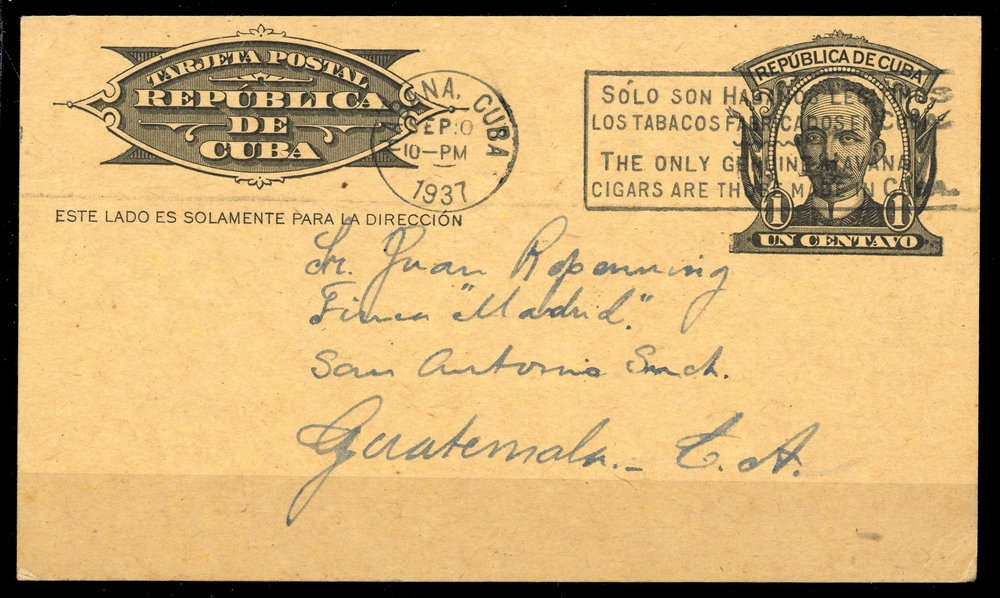 TARJETA POSTAL
REPÚBLICA
DE
CUBA
HABANA, CUBA
SEP 0
10-PM
1937
SÓLO SON HABANOS LEGÍTIMOS
LOS TABACOS FABRICADOS EN CUBA
THE ONLY GENUINE HAVANA
CIGARS ARE THOSE MADE IN CUBA
REPÚBLICA DE CUBA
1 1
UN CENTAVO
ESTE LADO ES SOLAMENTE PARA LA DIRECCIÓN
Sr. Juan Ropenning
Finca "Madrid".
San Antonio Such.
Guatemala._ C. A.